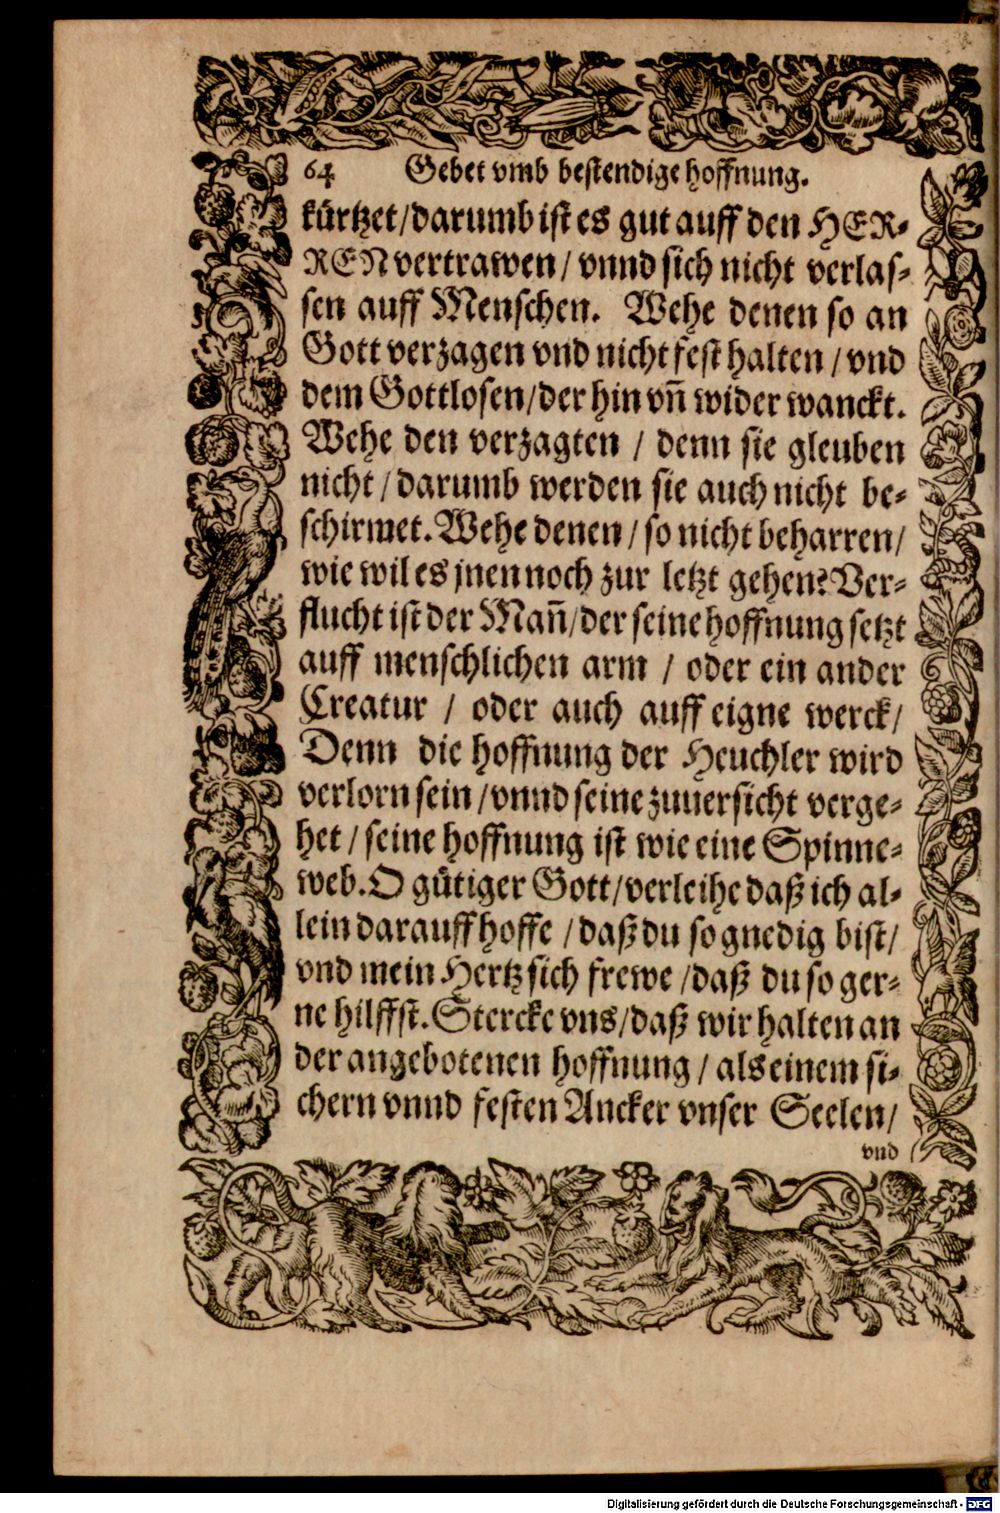 64 Gebet vmb bestendige hoffnung.
kürtzet/darumb ist es gut auff den HER-
REN vertrawen / vnnd sich nicht verlas-
sen auff Menschen. Wehe denen so an
Gott verzagen vnd nicht fest halten / vnd
dem Gottlosen/der hin vñ wider wanckt.
Wehe den verzagten / denn sie gleuben
nicht / darumb werden sie auch nicht be-
schirmet. Wehe denen / so nicht beharren/
wie wil es jnen noch zur letzt gehen? Ver-
flucht ist der Mañ/der seine hoffnung setzt
auff menschlichen arm / oder ein ander
Creatur / oder auch auff eigne werck/
Denn die hoffnung der Heuchler wird
verlorn sein / vnnd seine zuuersicht verge-
het / seine hoffnung ist wie eine Spinne-
web. O gütiger Gott/verleihe daß ich al-
lein darauff hoffe / daß du so gnedig bist/
vnd mein Hertz sich frewe / daß du so ger-
ne hilffst. Stercke vns/daß wir halten an
der angebotenen hoffnung / als einem si-
chern vnnd festen Ancker vnser Seelen/
vnd
Digitalisierung gefördert durch die Deutsche Forschungsgemeinschaft - DFG